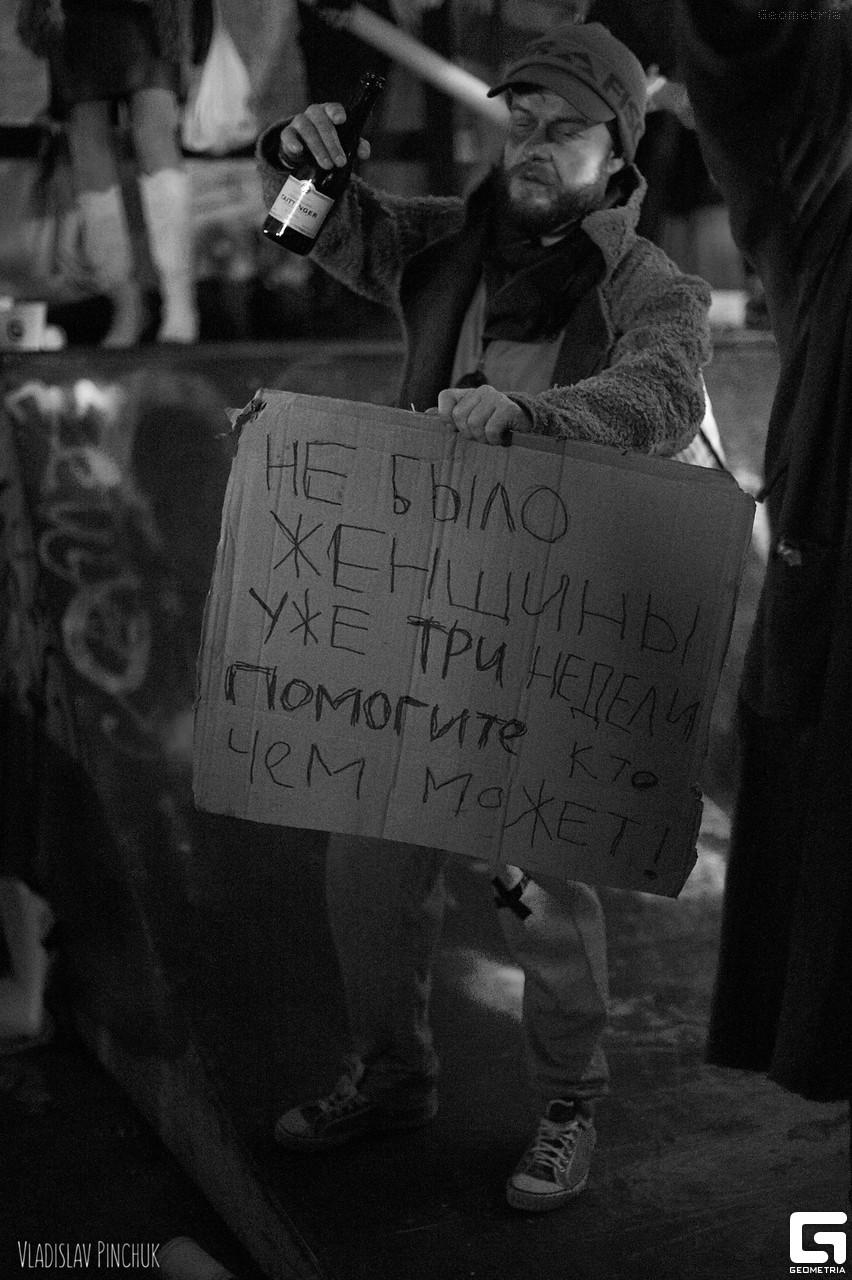 Geometria
TAITTINGER
НЕ БЫЛО
ЖЕНЩИНЫ
УЖЕ ТРИ НЕДЕЛИ
ПОМОГИТЕ КТО
ЧЕМ МОЖЕТ!
VLADISLAV PINCHUK
GEOMETRIA